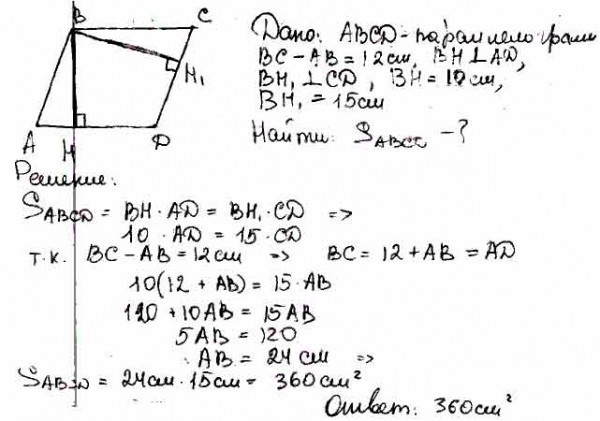 B
C
H₁
A
H
D
Дано: ABCD - параллелограмм
BC - AB = 12 см, BH ⊥ AD,
BH₁ ⊥ CD, BH = 10 см,
BH₁ = 15 см
Найти: S_ABCD - ?
Решение:
S_ABCD = BH · AD = BH₁ · CD =>
10 · AD = 15 · CD
т.к. BC - AB = 12 см => BC = 12 + AB = AD
10(12 + AB) = 15 · AB
120 + 10AB = 15AB
5AB = 120
AB = 24 см =>
S_ABCD = 24 см · 15 см = 360 см²
Ответ: 360 см²